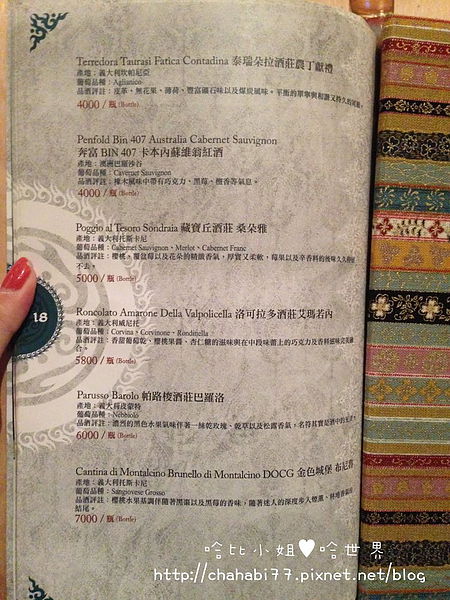 Terredora Taurasi Fatica Contadina 泰瑞朵拉酒莊農丁獻禮
產地：義大利坎帕尼亞
葡萄品種：Aglianico
品酒評註：皮革、無花果、薄荷、豐富礦石味以及煤炭風味。平衡的單寧與和諧又持久的尾韻。
4000 / 瓶 (Bottle)
Penfold Bin 407 Australia Cabernet Sauvignon
奔富 BIN 407 卡本內蘇維翁紅酒
產地：澳洲巴羅沙谷
葡萄品種：Cavernet Sauvignon
品酒評註：橡木風味中帶有巧克力、黑莓、檀香等氣息。
4000 / 瓶 (Bottle)
Poggio al Tesoro Sondraia 藏寶丘酒莊 桑朵雅
產地：義大利托斯卡尼
葡萄品種：Cabernet Sauvignon、Merlot、Cabernet Franc
品酒評註：櫻桃、覆盆莓以及花朵的精緻香氣，厚實又柔軟，莓果以及辛香料的後味久久徘徊
不去。
5000 / 瓶 (Bottle)
18
Roncolato Amarone Della Valpolicella 洛可拉多酒莊艾瑪若內
產地：義大利威尼托
葡萄品種：Corvina、Corvinone、Rondinella
品酒評註：香甜葡萄乾、櫻桃果醬、杏仁糖的滋味與在中段味蕾上的巧克力及香料滋味完美融
合。
5800 / 瓶 (Bottle)
Parusso Barolo 帕路梭酒莊巴羅洛
產地：義大利皮蒙特
葡萄品種：Nebbiolo
品酒評註：濃烈的黑色水果氣味伴著一絲乾玫瑰、乾草以及松露香氣，名符其實是酒中的王者。
6000 / 瓶 (Bottle)
Cantina di Montalcino Brunello di Montalcino DOCG 金色城堡 布尼
產地：義大利托斯卡尼
葡萄品種：Sangiovese Grosso
品酒評註：櫻桃水果基調伴隨著黑棗以及黑莓的香味，隨著迷人的深度步入煙薰、林地香氣的
結尾。
7000 / 瓶 (Bottle)
哈比小姐♥哈世界
http://chahabi77.pixnet.net/blog